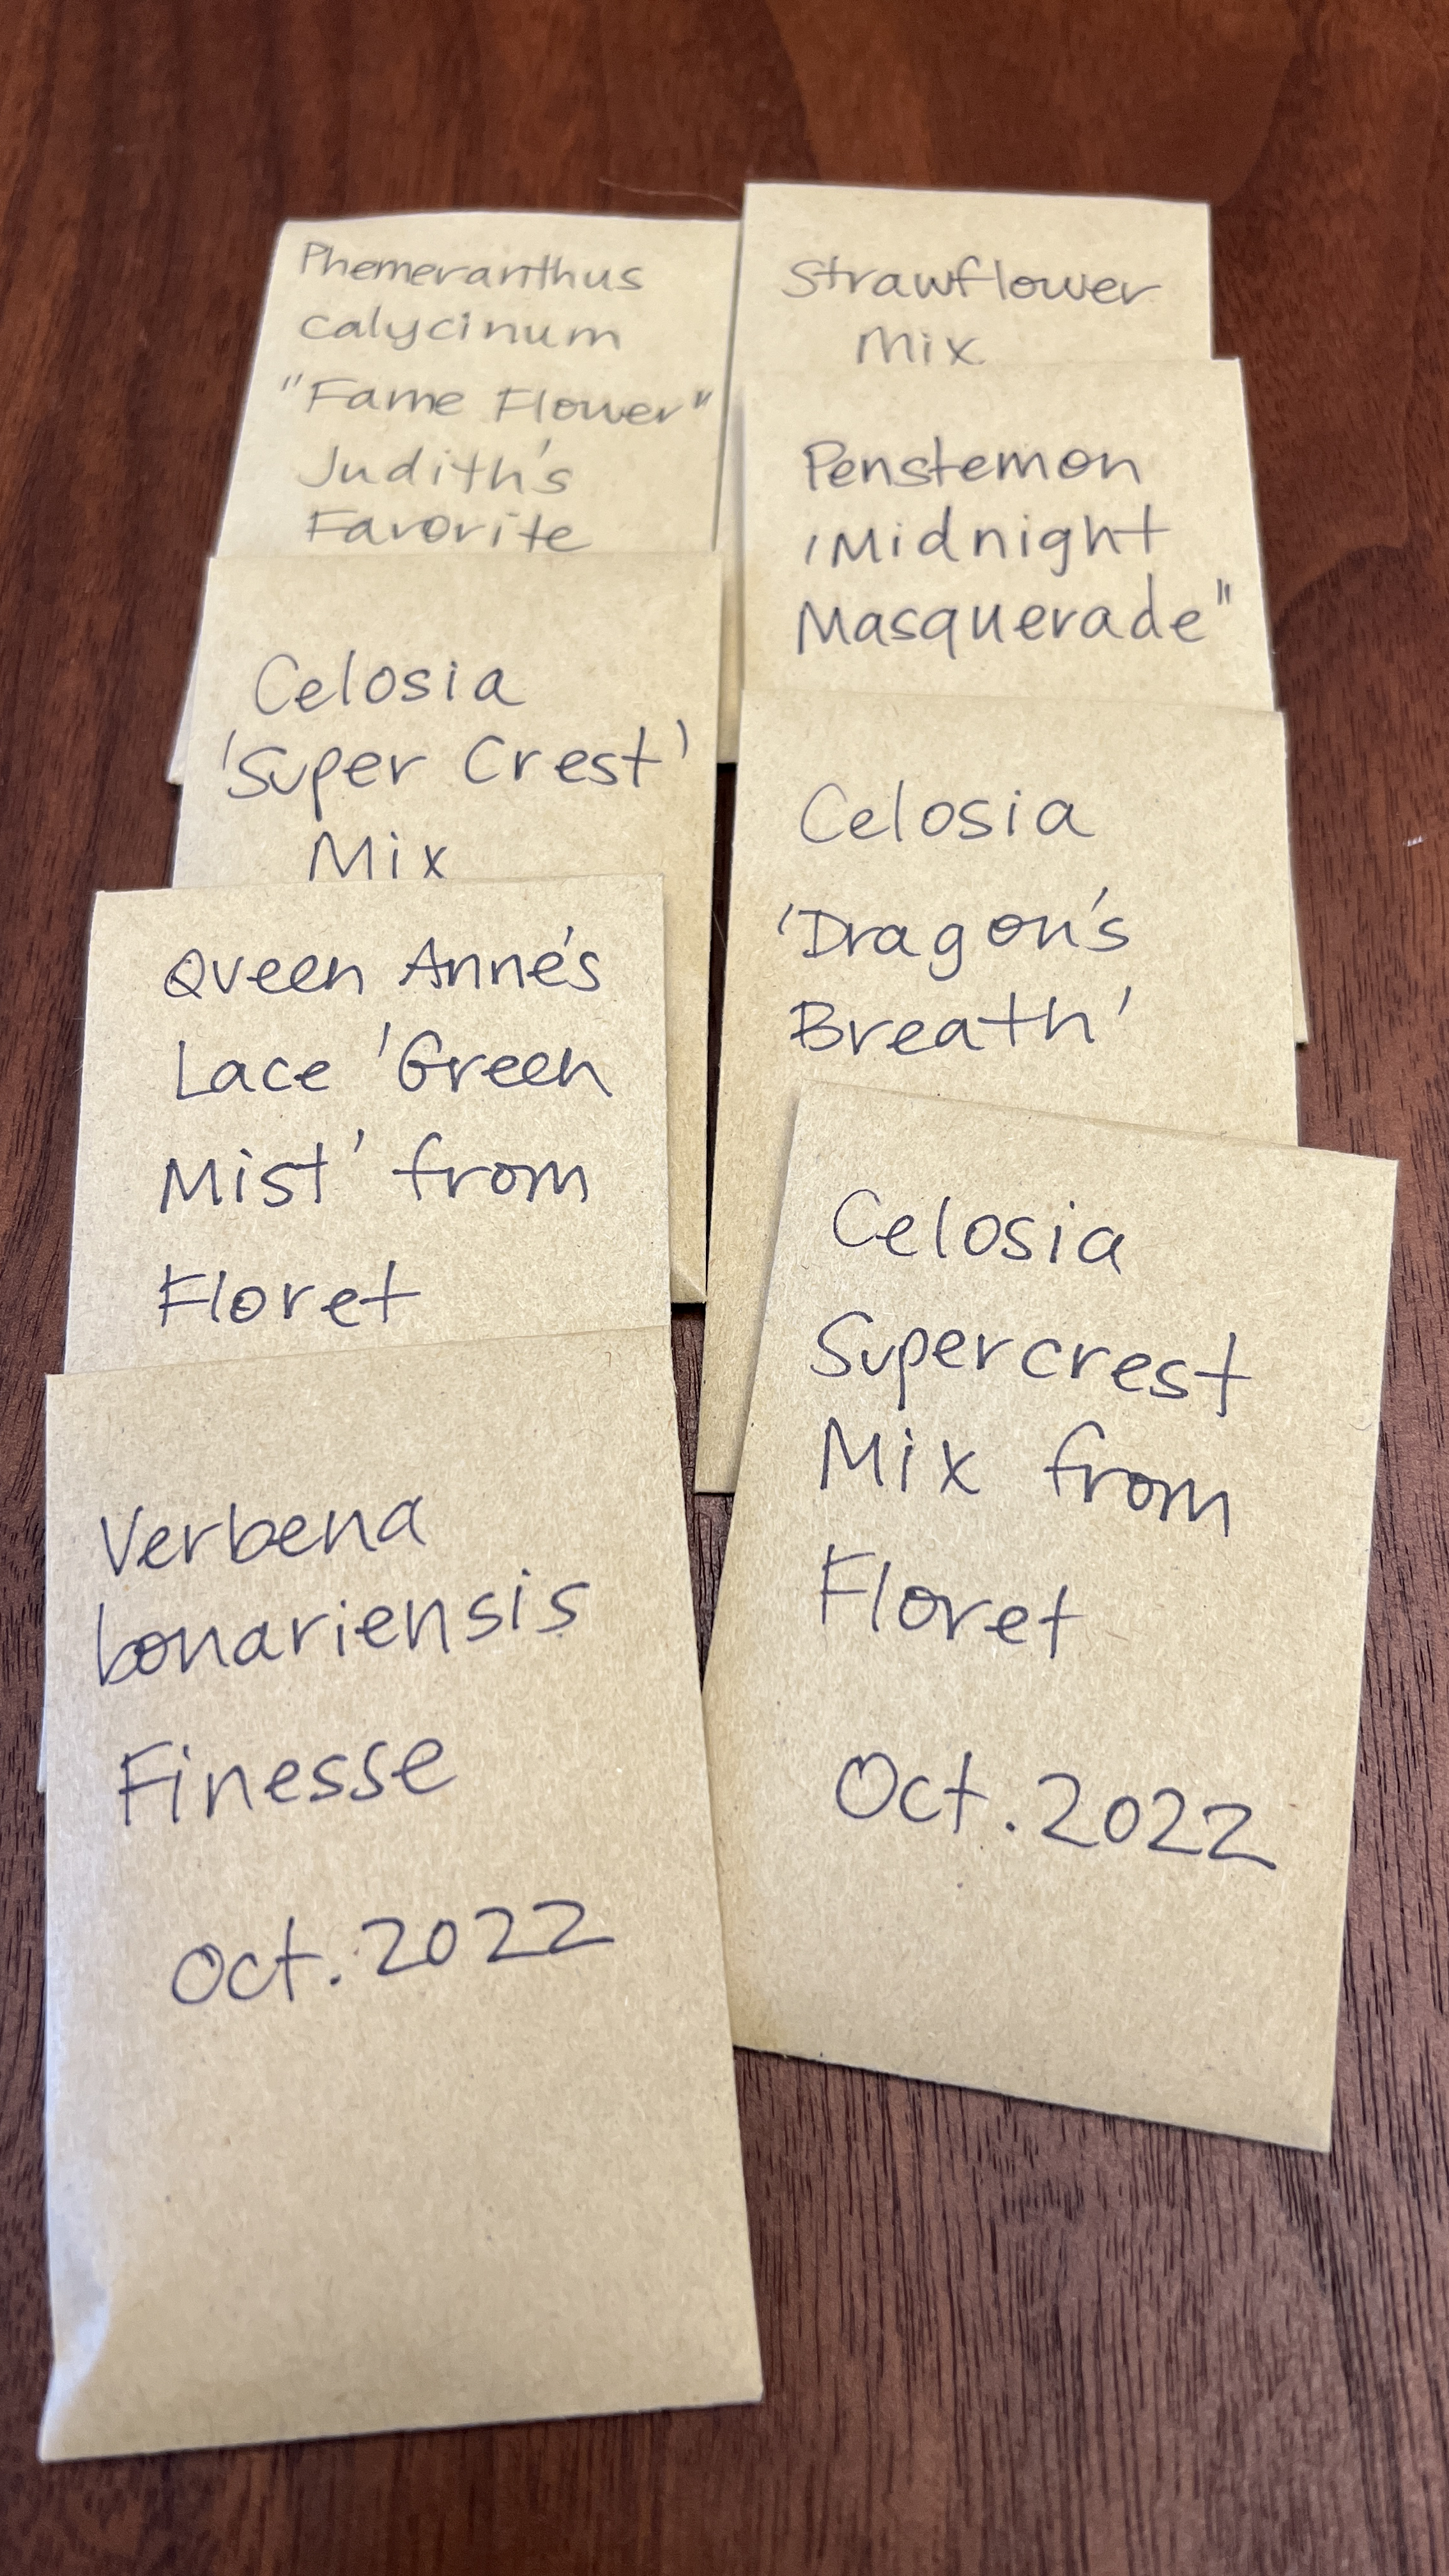 Phemeranthus
calycinum
"Fame Flower"
Judith's
Favorite
Celosia
'Super Crest'
Mix
Queen Anne's
Lace 'Green
Mist' from
Floret
Verbena
bonariensis
Finesse
Oct. 2022
Strawflower
Mix
Penstemon
'Midnight
Masquerade"
Celosia
'Dragon's
Breath'
Celosia
Supercrest
Mix from
Floret
Oct. 2022